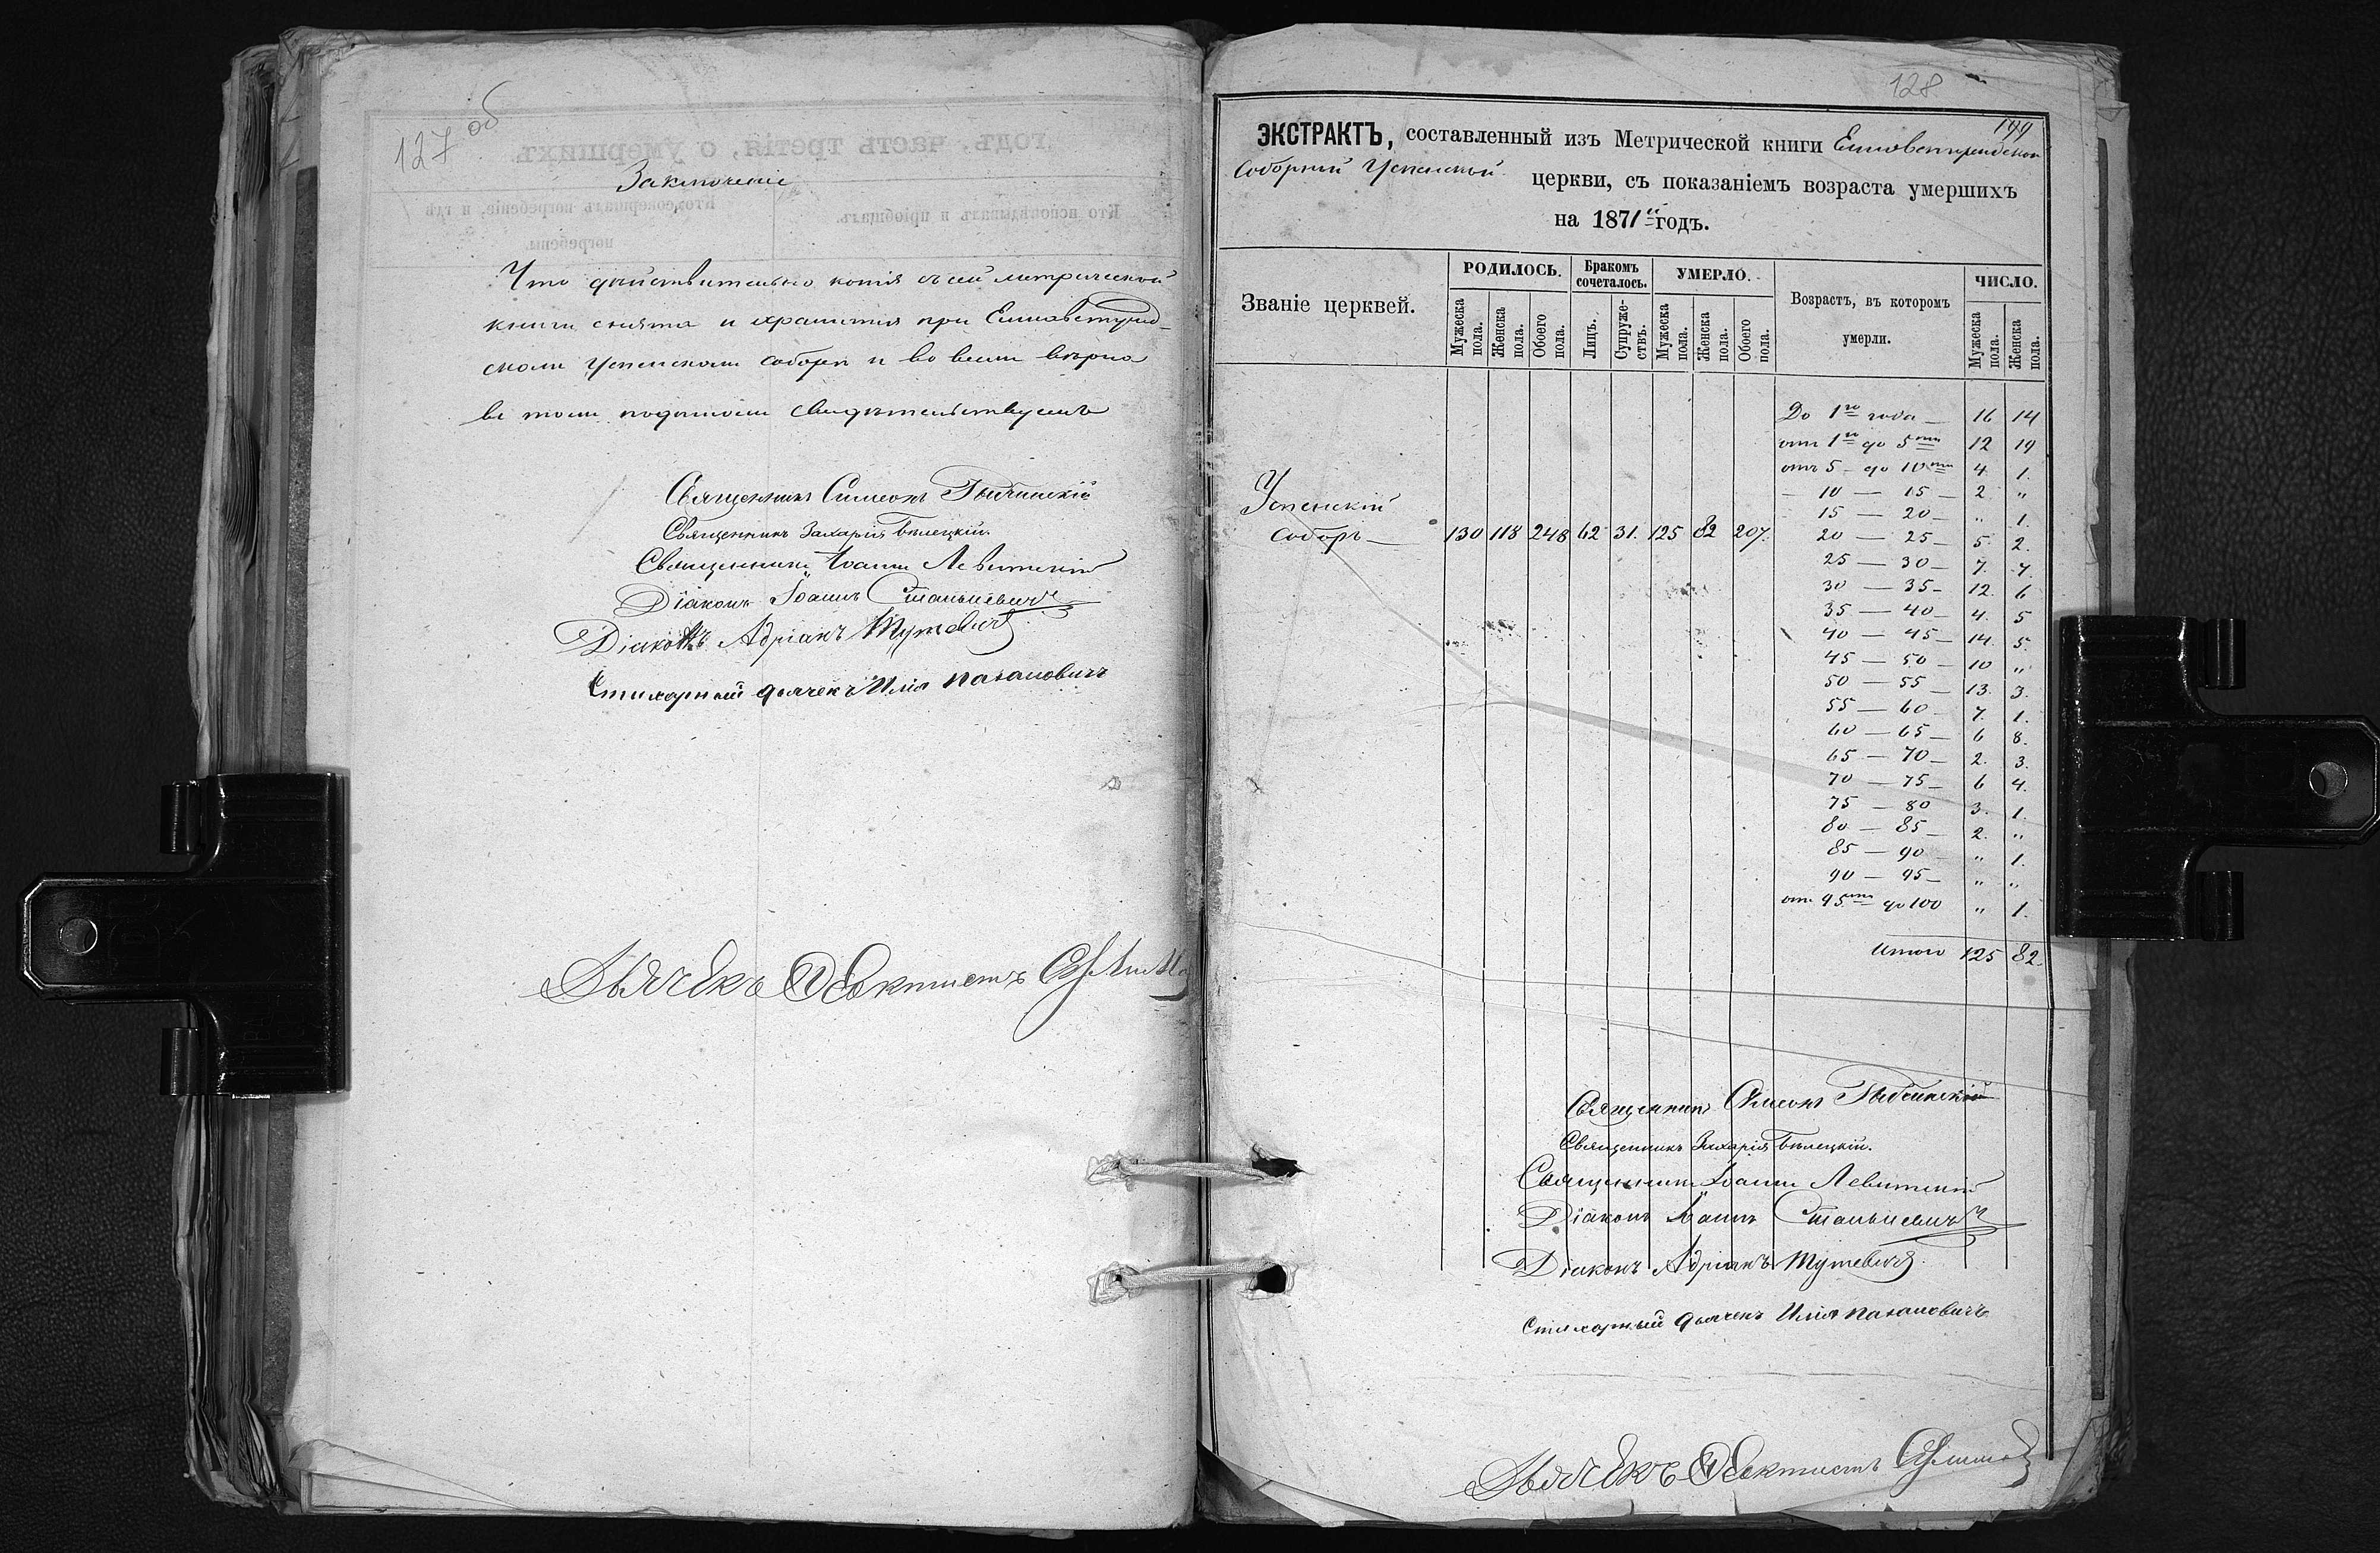 127 об
Заключеніе
Что дѣйствительно копія съ сей метрической
книги снята и хранится при Елисаветград-
скомъ Успенскомъ соборѣ и во всемъ вѣрна
въ томъ подписомъ свидѣтельствуемъ
Священникъ Симеонъ
Священникъ Захарія Бѣлецкій.
Священникъ Іоаннъ Левитскій
Діаконъ Іоаннъ Станкевичъ
Діаконъ Адріанъ Тутевичъ
Стихарный дьячекъ Илія Пахаловичъ
Дьячекъ Ѳеоктистъ
128
199
ЭКСТРАКТЪ, составленный изъ Метрической книги Елисаветградской
Соборной Успенской церкви, съ показаніемъ возраста умершихъ
на 1871й годъ.
Званіе церквей.
РОДИЛОСЬ.
Мужеска пола.
Женска пола.
Обоего пола.
Бракомъ сочеталось.
Лицъ.
Супружествъ.
УМЕРЛО.
Мужеска пола.
Женска пола.
Обоего пола.
Возрастъ, въ которомъ умерли.
ЧИСЛО.
Мужеска пола.
Женска пола.
До 1го года — 16 14
отъ 1го до 5ти 12 19
отъ 5 – до 10ти 4 1.
– 10 — 15 — 2. "
15 — 20 — " 1.
20 — 25 — 5. 2.
25 — 30 — 7. 7.
30 — 35 — 12. 6
35 — 40 — 4. 5
40 — 45 — 14. 5.
45 — 50 — 10 "
50 — 55 — 13. 3.
55 — 60 — 7. 1.
60 — 65 — 6 8.
65 — 70 — 2. 3.
70 — 75 — 6 4.
75 — 80 3. 1.
80 — 85 — 2. "
85 — 90 — " 1.
90 — 95 — " "
отъ 95ти до 100 " 1.
Итого 125 82.
Успенскій
Соборъ — 130 118 248 62 31. 125 82 207.
Священникъ Симеонъ
Священникъ Захарія Бѣлецкій.
Священникъ Іоаннъ Левитскій
Діаконъ Іоаннъ Станкевичъ
Діаконъ Адріанъ Тутевичъ
Стихарный дьячекъ Илія Пахаловичъ
Дьячекъ Ѳеоктистъ